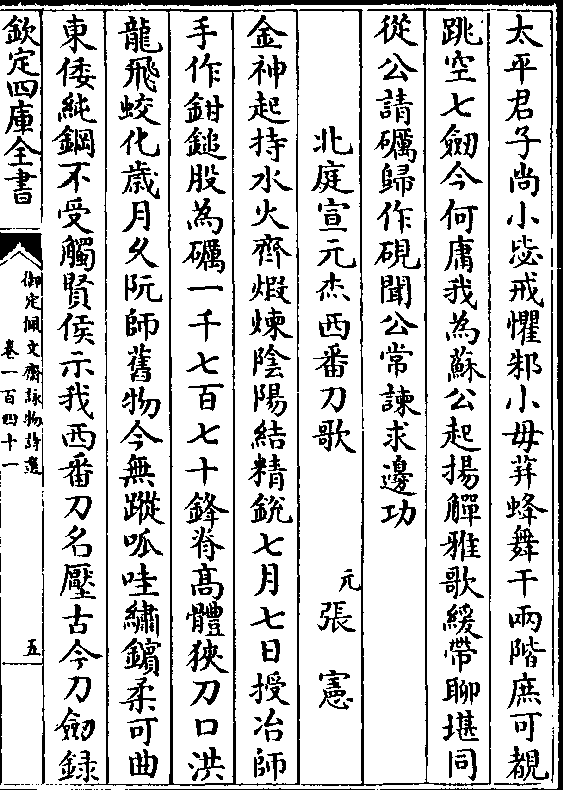 太平君子尚小毖戒懼邾小毋荓蜂舞干兩階庶可覩
跳空七劒今何庸我為蘇公起揚觶雅歌緩帶聊堪同
從公請礪歸作硯聞公常諫求邊功
北庭宣元杰西番刀歌
元張憲
金神起持水火齊煆煉陰陽結精銳七月七日授冶師
手作鉗鎚股為礪一千七百七十鋒脊高體狹刀口洪
龍飛蛟化歲月久阮師舊物今無蹤呱哇繡鑌柔可曲
東倭純鋼不受觸賢侯示我西番刀名壓古今刀劒録
欽定四庫全書
御定佩文齋詠物詩選
卷一百四十一
五